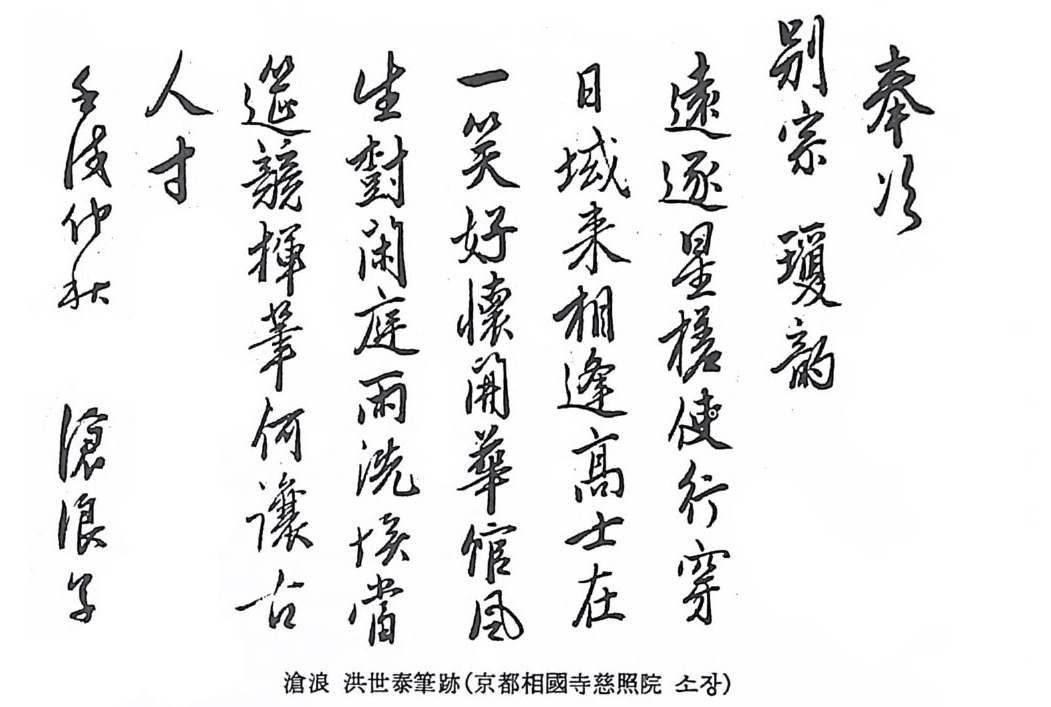 奉次
別宗 瓊韵
遠逐星槎使行穿
日域来相逢高士在
一笑好懷開華館風
生樹閑庭雨洗埃當
筵競揮筆何讓古
人才
壬戌仲秋 滄浪子
滄浪 洪世泰筆跡(京都相國寺慈照院 소장)